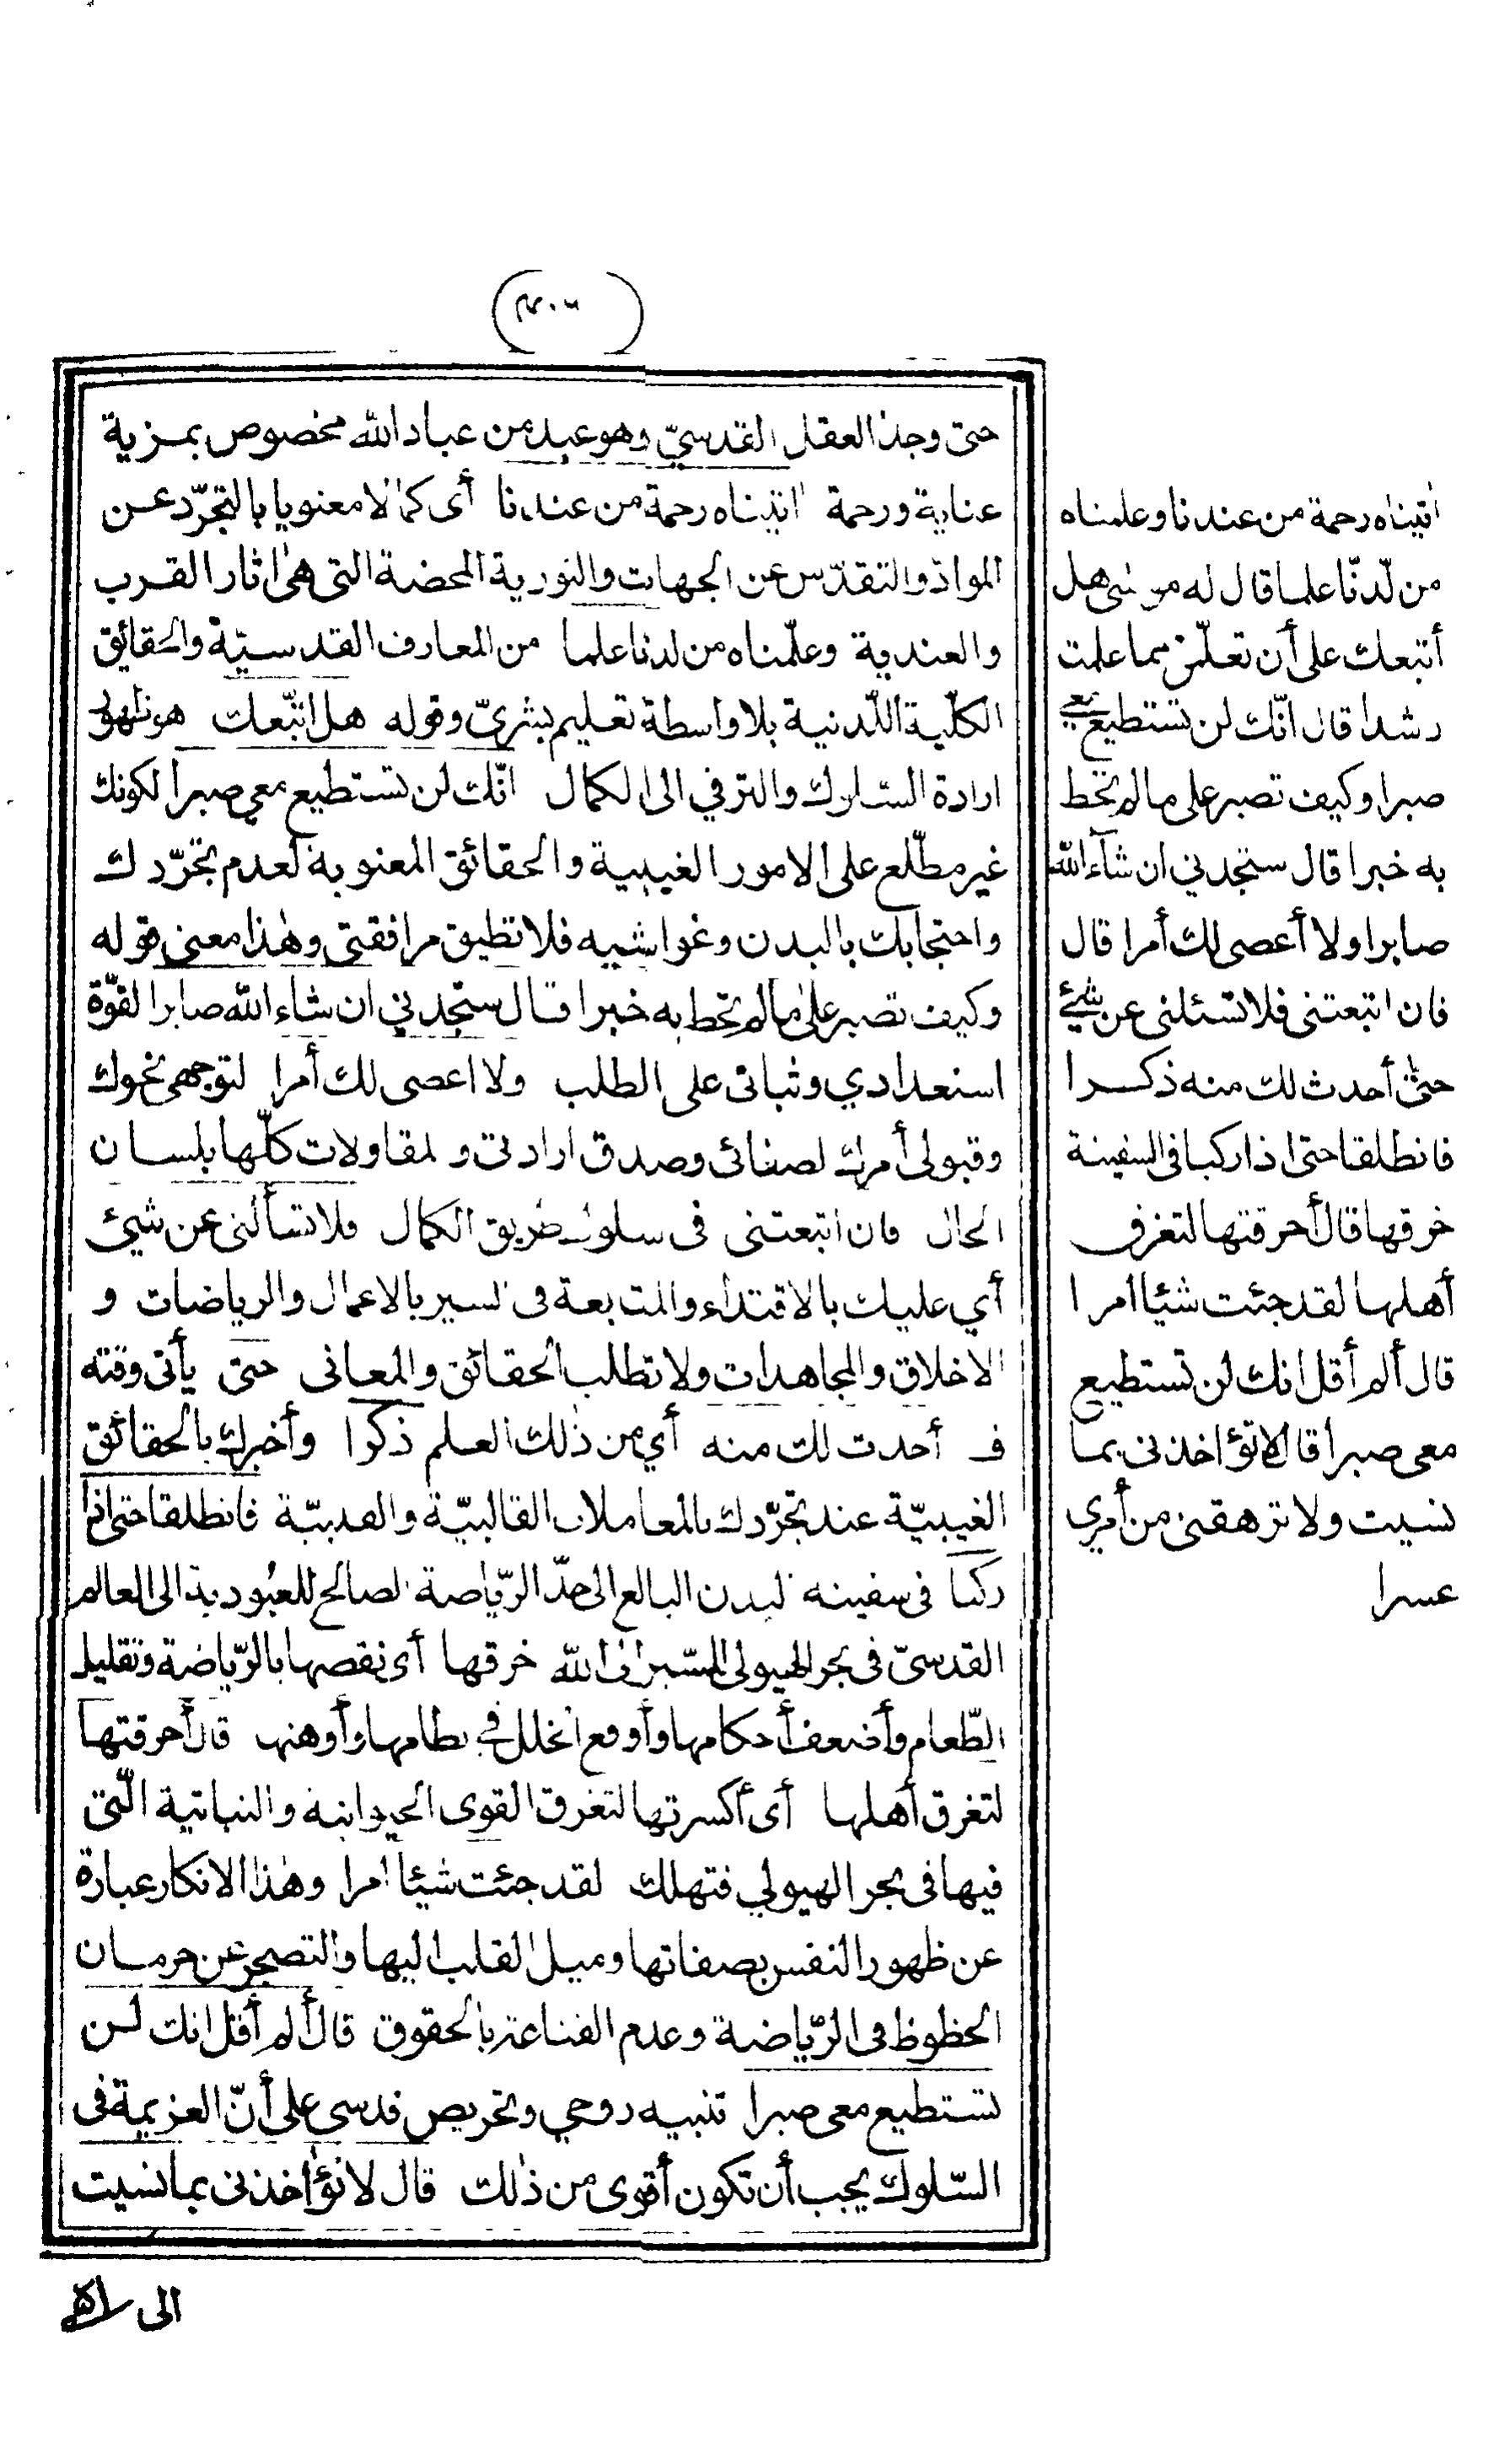 حتى وجدا العقل القدسيّ وهو عبد من عباد الله مخصوص بمزية
عناية ورحمة اتيناه رحمة من عندنا أى كمالا معنويا بالتجرّد عن
الموادّ والتقدّس عن الجهات والنورية المحضة التى هى اثار القرب
والعندية وعلّمناه من لدنا علما من المعارف القدسيّة والحقائق
الكلّية اللّدنية بلا واسطة تعليم بشرىّ وقوله هل اتّبعك هو ظهور
ارادة السّلوك والترقي الى الكمال انّك لن تستطيع معي صبرا لكونك
غير مطّلع على الامور الغيبية والحقائق المعنوية لعدم تجرّدك
واحتجابك بالبدن وغواشيه فلا تطيق مرافقتى وهذا معنى قوله
وكيف تصبر على ما لم تحط به خبرا قال ستجدني ان شاء الله صابرا لقوّة
استعدادي وثباتى على الطلب ولا اعصى لك أمرا لتوجهى نحوك
وقبولى أمرك لصفائى وصدق ارادتى و لمقاولات كلّها بلسان
الحال فان اتبعتنى فى سلوك طريق الكمال فلا تسألنى عن شيئ
أي عليك بالاقتداء والمتابعة فى السير بالاعمال والرياضات و
الاخلاق والمجاهدات ولا تطلب الحقائق والمعانى حتى يأتى وقته
فـ أحدث لك منه أي من ذلك العلم ذكرا وأخبرك بالحقائق
الغيبيّة عند تجرّدك بالمعاملات القالبيّة والقلبيّة فانطلقا حتى اذا
ركبا فى سفينة البدن البالغ الى حدّ الرّياضة الصالح للعبودية الى العالم
القدسىّ فى بحر الهيولى للسّير الى الله خرقها أى نقصها بالرّياضة وتقليل
الطّعام وأضعف أحكامها وأوقع الخلل فى نظامها وأوهنها قال أخرقتها
لتغرق أهلها أى أكسرتها لتغرق القوى الحيوانية والنباتية الّتى
فيها فى بحر الهيولي فتهلك لقد جئت شيئا امرا وهذا الانكار عبارة
عن ظهور النفس بصفاتها وميل القلب اليها والتضجر عن حرمان
الحظوظ فى الرّياضة وعدم القناعة بالحقوق قال ألم أقل انك لن
تستطيع معى صبرا تنبيه روحي وتحريص قدسى على أنّ العزيمة فى
السّلوك يجب أن تكون أقوى من ذلك قال لا تؤاخذنى بما نسيت
اتيناه رحمة من عندنا وعلمناه
من لّدنّا علما قال له موسى هل
أتبعك على أن تعلّمن مما علمت
رشدا قال انّك لن تستطيع معي
صبرا وكيف تصبر على ما لم تحط
به خبرا قال ستجدني ان شآء الله
صابرا ولا أعصى لك أمرا قال
فان اتبعتنى فلا تسئلنى عن شيئ
حتى أحدث لك منه ذكرا
فانطلقا حتى اذا ركبا فى السفينة
خرقها قال أخرقتها لتغرق
أهلها لقد جئت شيئا امرا
قال ألم أقل انك لن تستطيع
معى صبرا قال لا تؤاخذنى بما
نسيت ولا ترهقنى من أمري
عسرا
الى